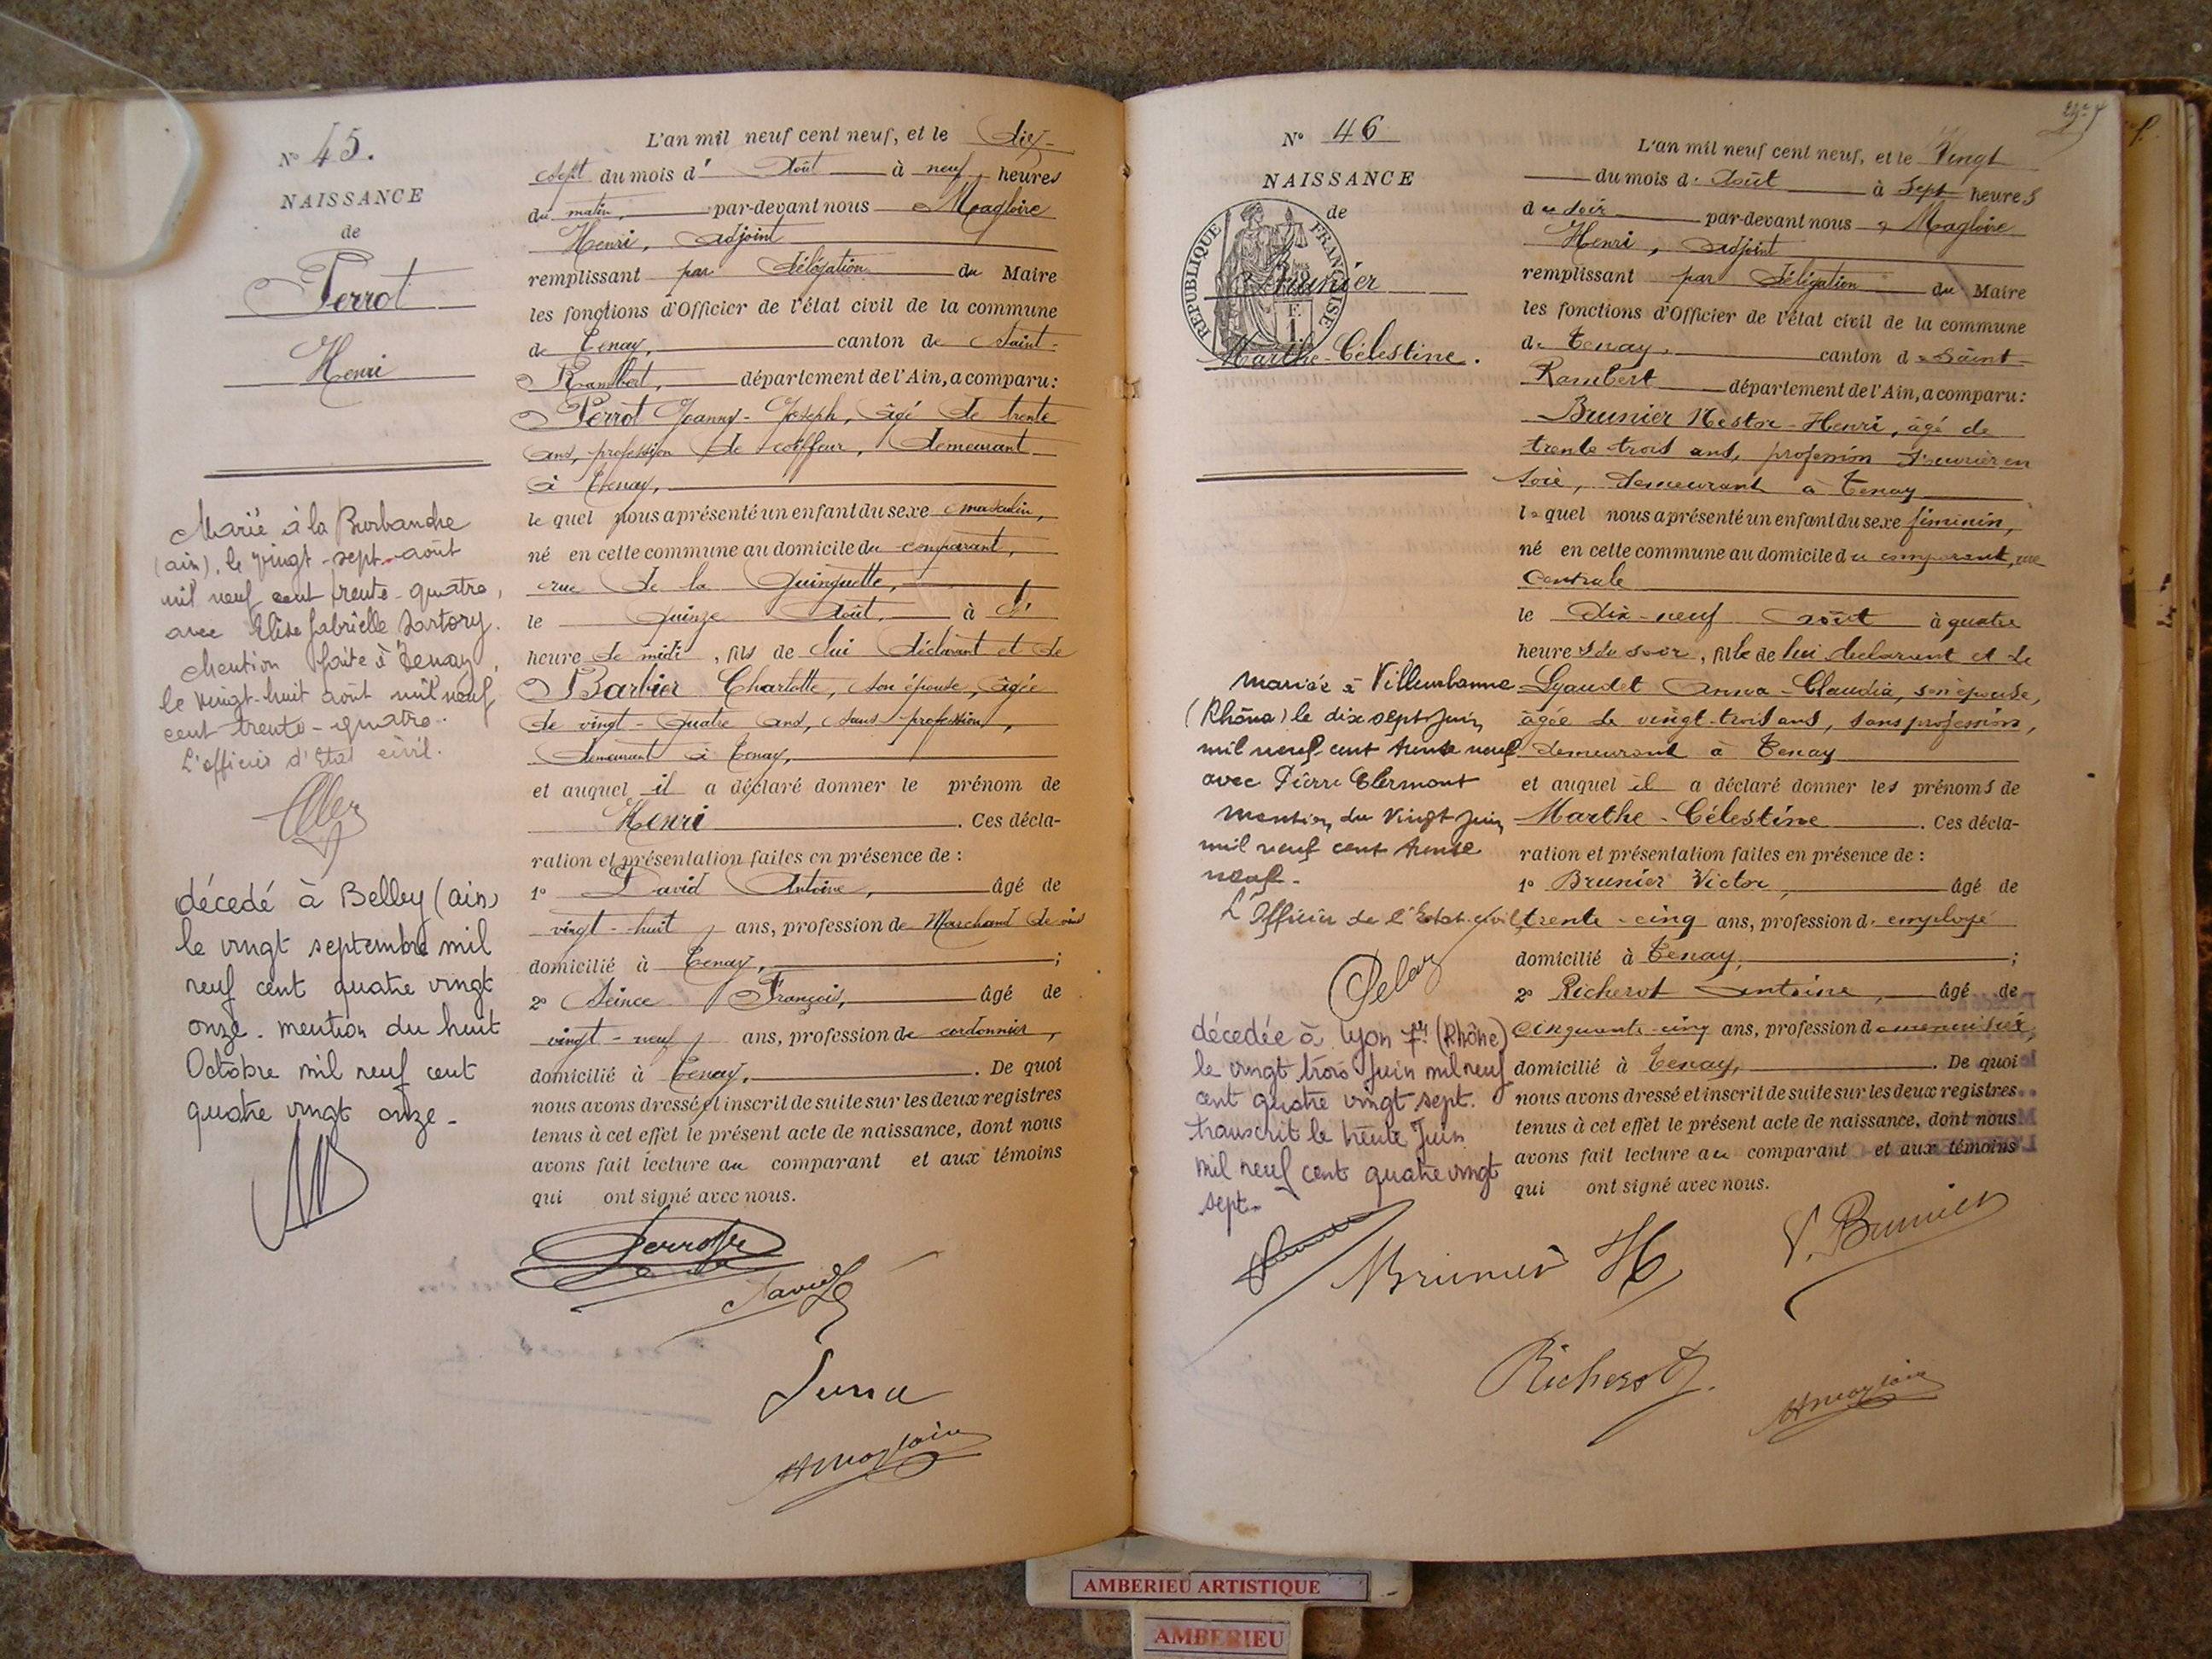 Nº 45.
NAISSANCE
de
Perrot
Henri
Marié à la Burbanche
(ain), le vingt-sept août
mil neuf cent trente-quatre,
avec Elise Gabrielle Sartory.
Mention faite à Tenay,
le vingt-huit août mil neuf
cent trente-quatre.
L'officier d'Etat civil.
décedé à Belley (ain)
le vingt septembre mil
neuf cent quatre vingt
onze. mention du huit
Octobre mil neuf cent
quatre vingt onze-
L'an mil neuf cent neuf, et le Dix-
sept du mois d' Août à neuf heures
du matin, par-devant nous Magloire
Henri, adjoint
remplissant par délégation du Maire
les fonctions d'Officier de l'état civil de la commune
de Tenay, canton de Saint-
Rambert, département de l'Ain, a comparu:
Perrot Joanny-Joseph, âgé de trente
ans, profession de coiffeur, demeurant
à Tenay,
le quel nous a présenté un enfant du sexe masculin,
né en cette commune au domicile du comparant,
rue de la Guinguette,
le quinze Août, à
heure de midi, fils de lui déclarant et de
Barbier Charlotte, son épouse, âgée
de vingt-quatre ans, sans profession,
demeurant à Tenay,
et auquel il a déclaré donner le prénom de
Henri. Ces décla-
ration et présentation faites en présence de :
1º David Antoine, âgé de
vingt-huit ans, profession de Marchand de vins
domicilié à Tenay, ;
2º François, âgé de
vingt-neuf ans, profession de cordonnier,
domicilié à Tenay, . De quoi
nous avons dressé et inscrit de suite sur les deux registres
tenus à cet effet le présent acte de naissance, dont nous
avons fait lecture au comparant et aux témoins
qui ont signé avec nous.
Nº 46
NAISSANCE
de
REPUBLIQUE FRANÇAISE
Brunier
Marthe-Célestine.
mariée à Villeurbanne
(Rhône) le dix sept juin
mil neuf cent trente neuf
avec Pierre Clermont
Mention du vingt juin
mil neuf cent trente
neuf-
L'Officier de l'Etat-civil
décedée à Lyon 7e (Rhône)
le vingt trois Juin mil neuf
cent quatre vingt sept.
transcrit le trente Juin
mil neuf cent quatre vingt
sept-
L'an mil neuf cent neuf, et le Vingt
du mois d' Août à sept heures
du soir par-devant nous Magloire
Henri, adjoint
remplissant par délégation du Maire
les fonctions d'Officier de l'état civil de la commune
de Tenay, canton de Saint-
Rambert département de l'Ain, a comparu:
Brunier Nestor-Henri, âgé de
trente trois ans, profession d'ouvrier en
soie, demeurant à Tenay
lequel nous a présenté un enfant du sexe féminin,
né en cette commune au domicile du comparant, rue
Centrale
le dix-neuf août à quatre
heures du soir, fille de lui déclarant et de
Lyaudet Anna-Claudia, son épouse,
âgée de vingt-trois ans, sans profession,
demeurant à Tenay
et auquel il a déclaré donner les prénoms de
Marthe-Célestine. Ces décla-
ration et présentation faites en présence de :
1º Brunier Victor, âgé de
trente-cinq ans, profession d' employé
domicilié à Tenay, ;
2º Richerot Antoine, âgé de
cinquante-cinq ans, profession de menuisier,
domicilié à Tenay, . De quoi
nous avons dressé et inscrit de suite sur les deux registres
tenus à cet effet le présent acte de naissance, dont nous
avons fait lecture au comparant et aux témoins
qui ont signé avec nous.
Brunier H
V. Brunier
Richerot
AMBERIEU ARTISTIQUE
AMBERIEU